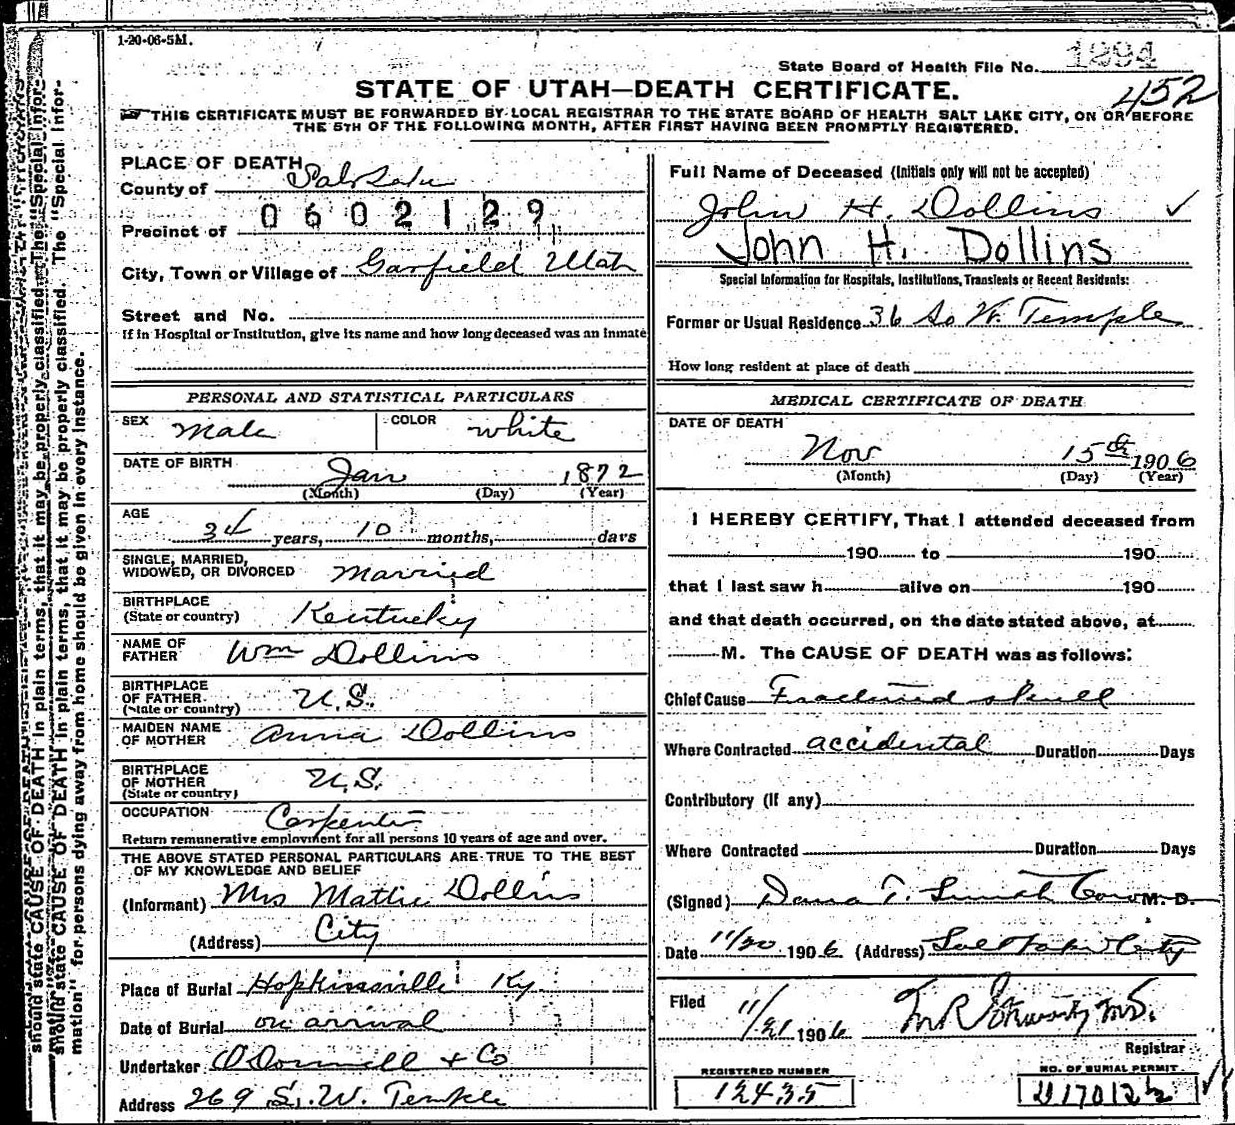 1-20-06-5M.
State Board of Health File No. 1294
452
STATE OF UTAH—DEATH CERTIFICATE.
THIS CERTIFICATE MUST BE FORWARDED BY LOCAL REGISTRAR TO THE STATE BOARD OF HEALTH SALT LAKE CITY, ON OR BEFORE
THE 5TH OF THE FOLLOWING MONTH, AFTER FIRST HAVING BEEN PROMPTLY REGISTERED.
PLACE OF DEATH
County of Salt Lake
0602129
Precinct of
City, Town or Village of Garfield Utah
Street and No.
If in Hospital or Institution, give its name and how long deceased was an inmate
Full Name of Deceased (Initials only will not be accepted)
John H. Dollins ✓
John H. Dollins
Special Information for Hospitals, Institutions, Transients or Recent Residents:
Former or Usual Residence 36 So W. Temple
How long resident at place of death
PERSONAL AND STATISTICAL PARTICULARS
SEX Male COLOR White
DATE OF BIRTH Jan 1872
(Month) (Day) (Year)
AGE 34 years, 10 months, days
SINGLE, MARRIED,
WIDOWED, OR DIVORCED Married
BIRTHPLACE
(State or country) Kentucky
NAME OF
FATHER Wm Dollins
BIRTHPLACE
OF FATHER
(State or country) U.S.
MAIDEN NAME
OF MOTHER Anna Dollins
BIRTHPLACE
OF MOTHER
(State or country) U.S.
OCCUPATION Carpenter
Return remunerative employment for all persons 10 years of age and over.
THE ABOVE STATED PERSONAL PARTICULARS ARE TRUE TO THE BEST
OF MY KNOWLEDGE AND BELIEF
(Informant) Mrs Mattie Dollins
(Address) City
Place of Burial Hopkinsville Ky
Date of Burial on arrival
Undertaker O'Donnell & Co
Address 269 S. W. Temple
MEDICAL CERTIFICATE OF DEATH
DATE OF DEATH
Nov 15th 1906
(Month) (Day) (Year)
I HEREBY CERTIFY, That I attended deceased from
190 to 190
that I last saw h alive on 190
and that death occurred, on the date stated above, at
M. The CAUSE OF DEATH was as follows:
Chief Cause Fractured skull
Where Contracted accidental Duration Days
Contributory (If any)
Where Contracted Duration Days
(Signed) Dana T. Smith M. D.
Date 11/20 1906 (Address) Salt Lake City
Filed 11/21 1906
Registrar
REGISTERED NUMBER
12435
NO. OF BURIAL PERMIT
should state CAUSE OF DEATH in plain terms, that it may be properly classified. The "Special Infor-
mation" for persons dying away from home should be given in every instance.